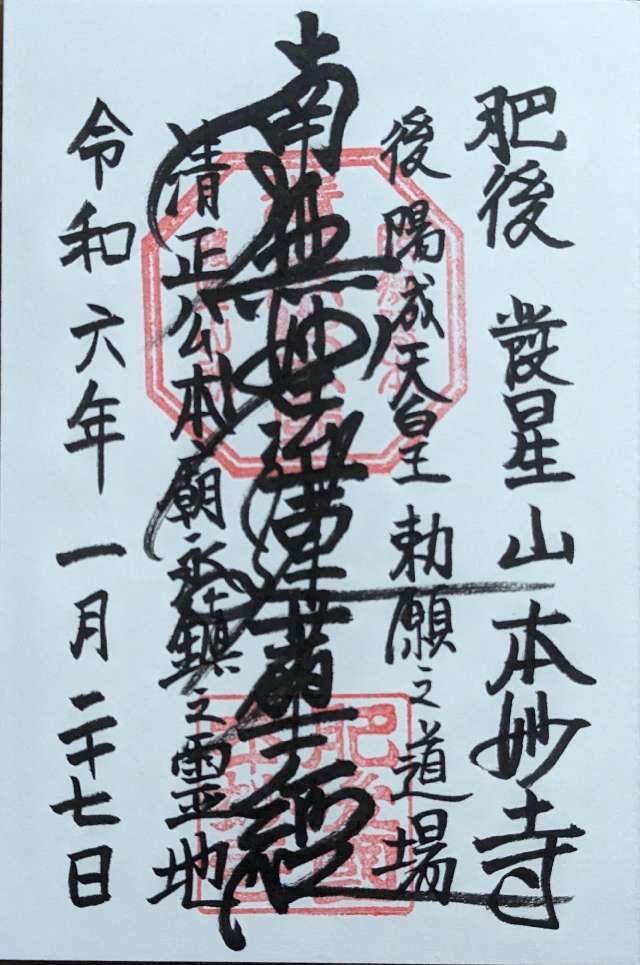 肥後 發星山 本妙寺
後陽成天皇 勅願之道場
南無妙法蓮華経
清正公本廟永鎮之霊地
令和六年 一月 二十七日